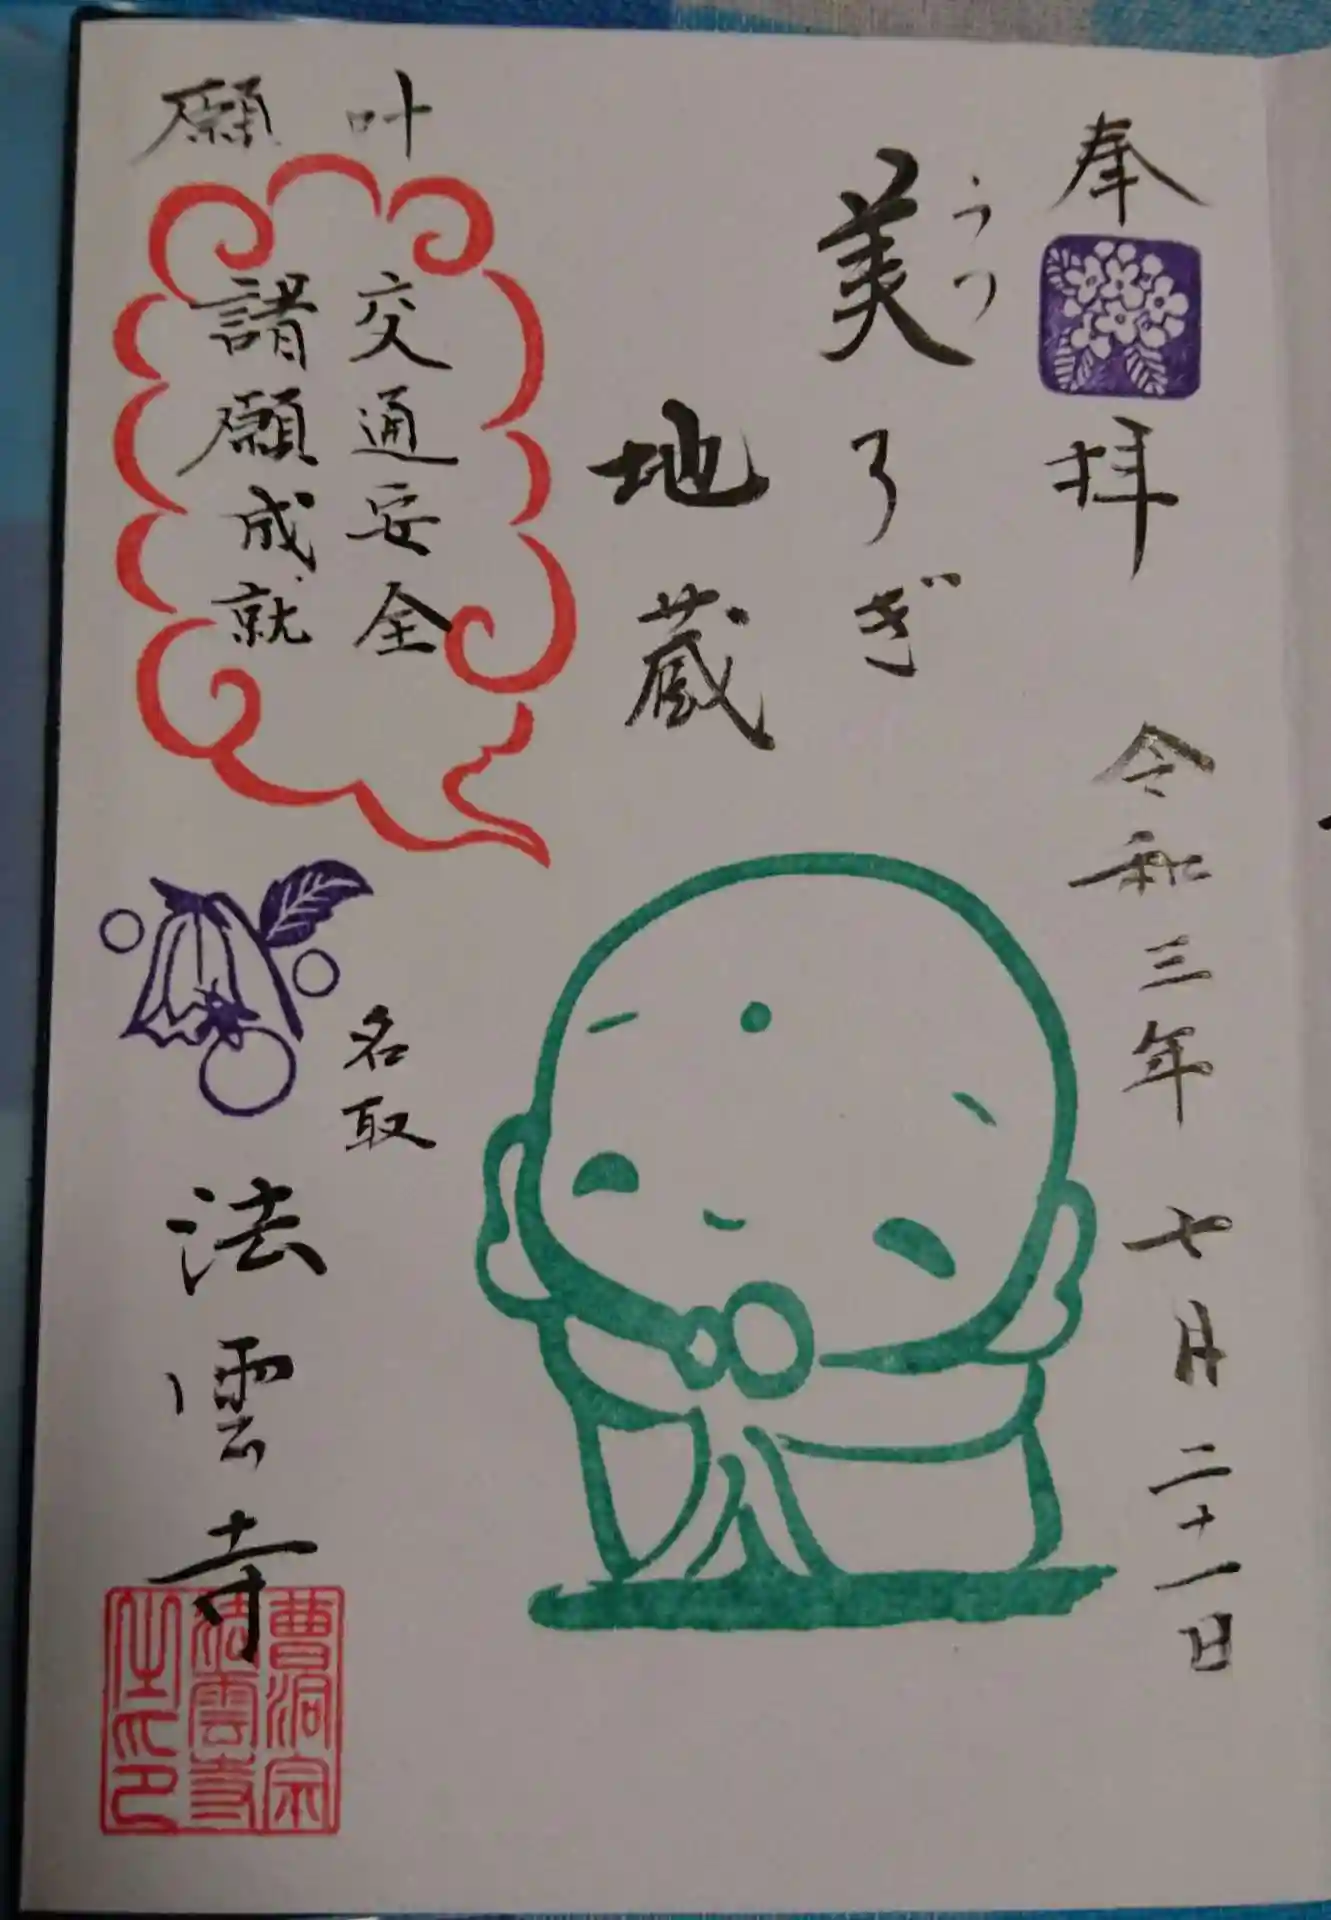 奉拝
令和三年 七月 二十一日
うつ
美ろぎ
地蔵
叶願
交通安全
諸願成就
名取
法雲寺
曹洞宗
法雲寺
之印